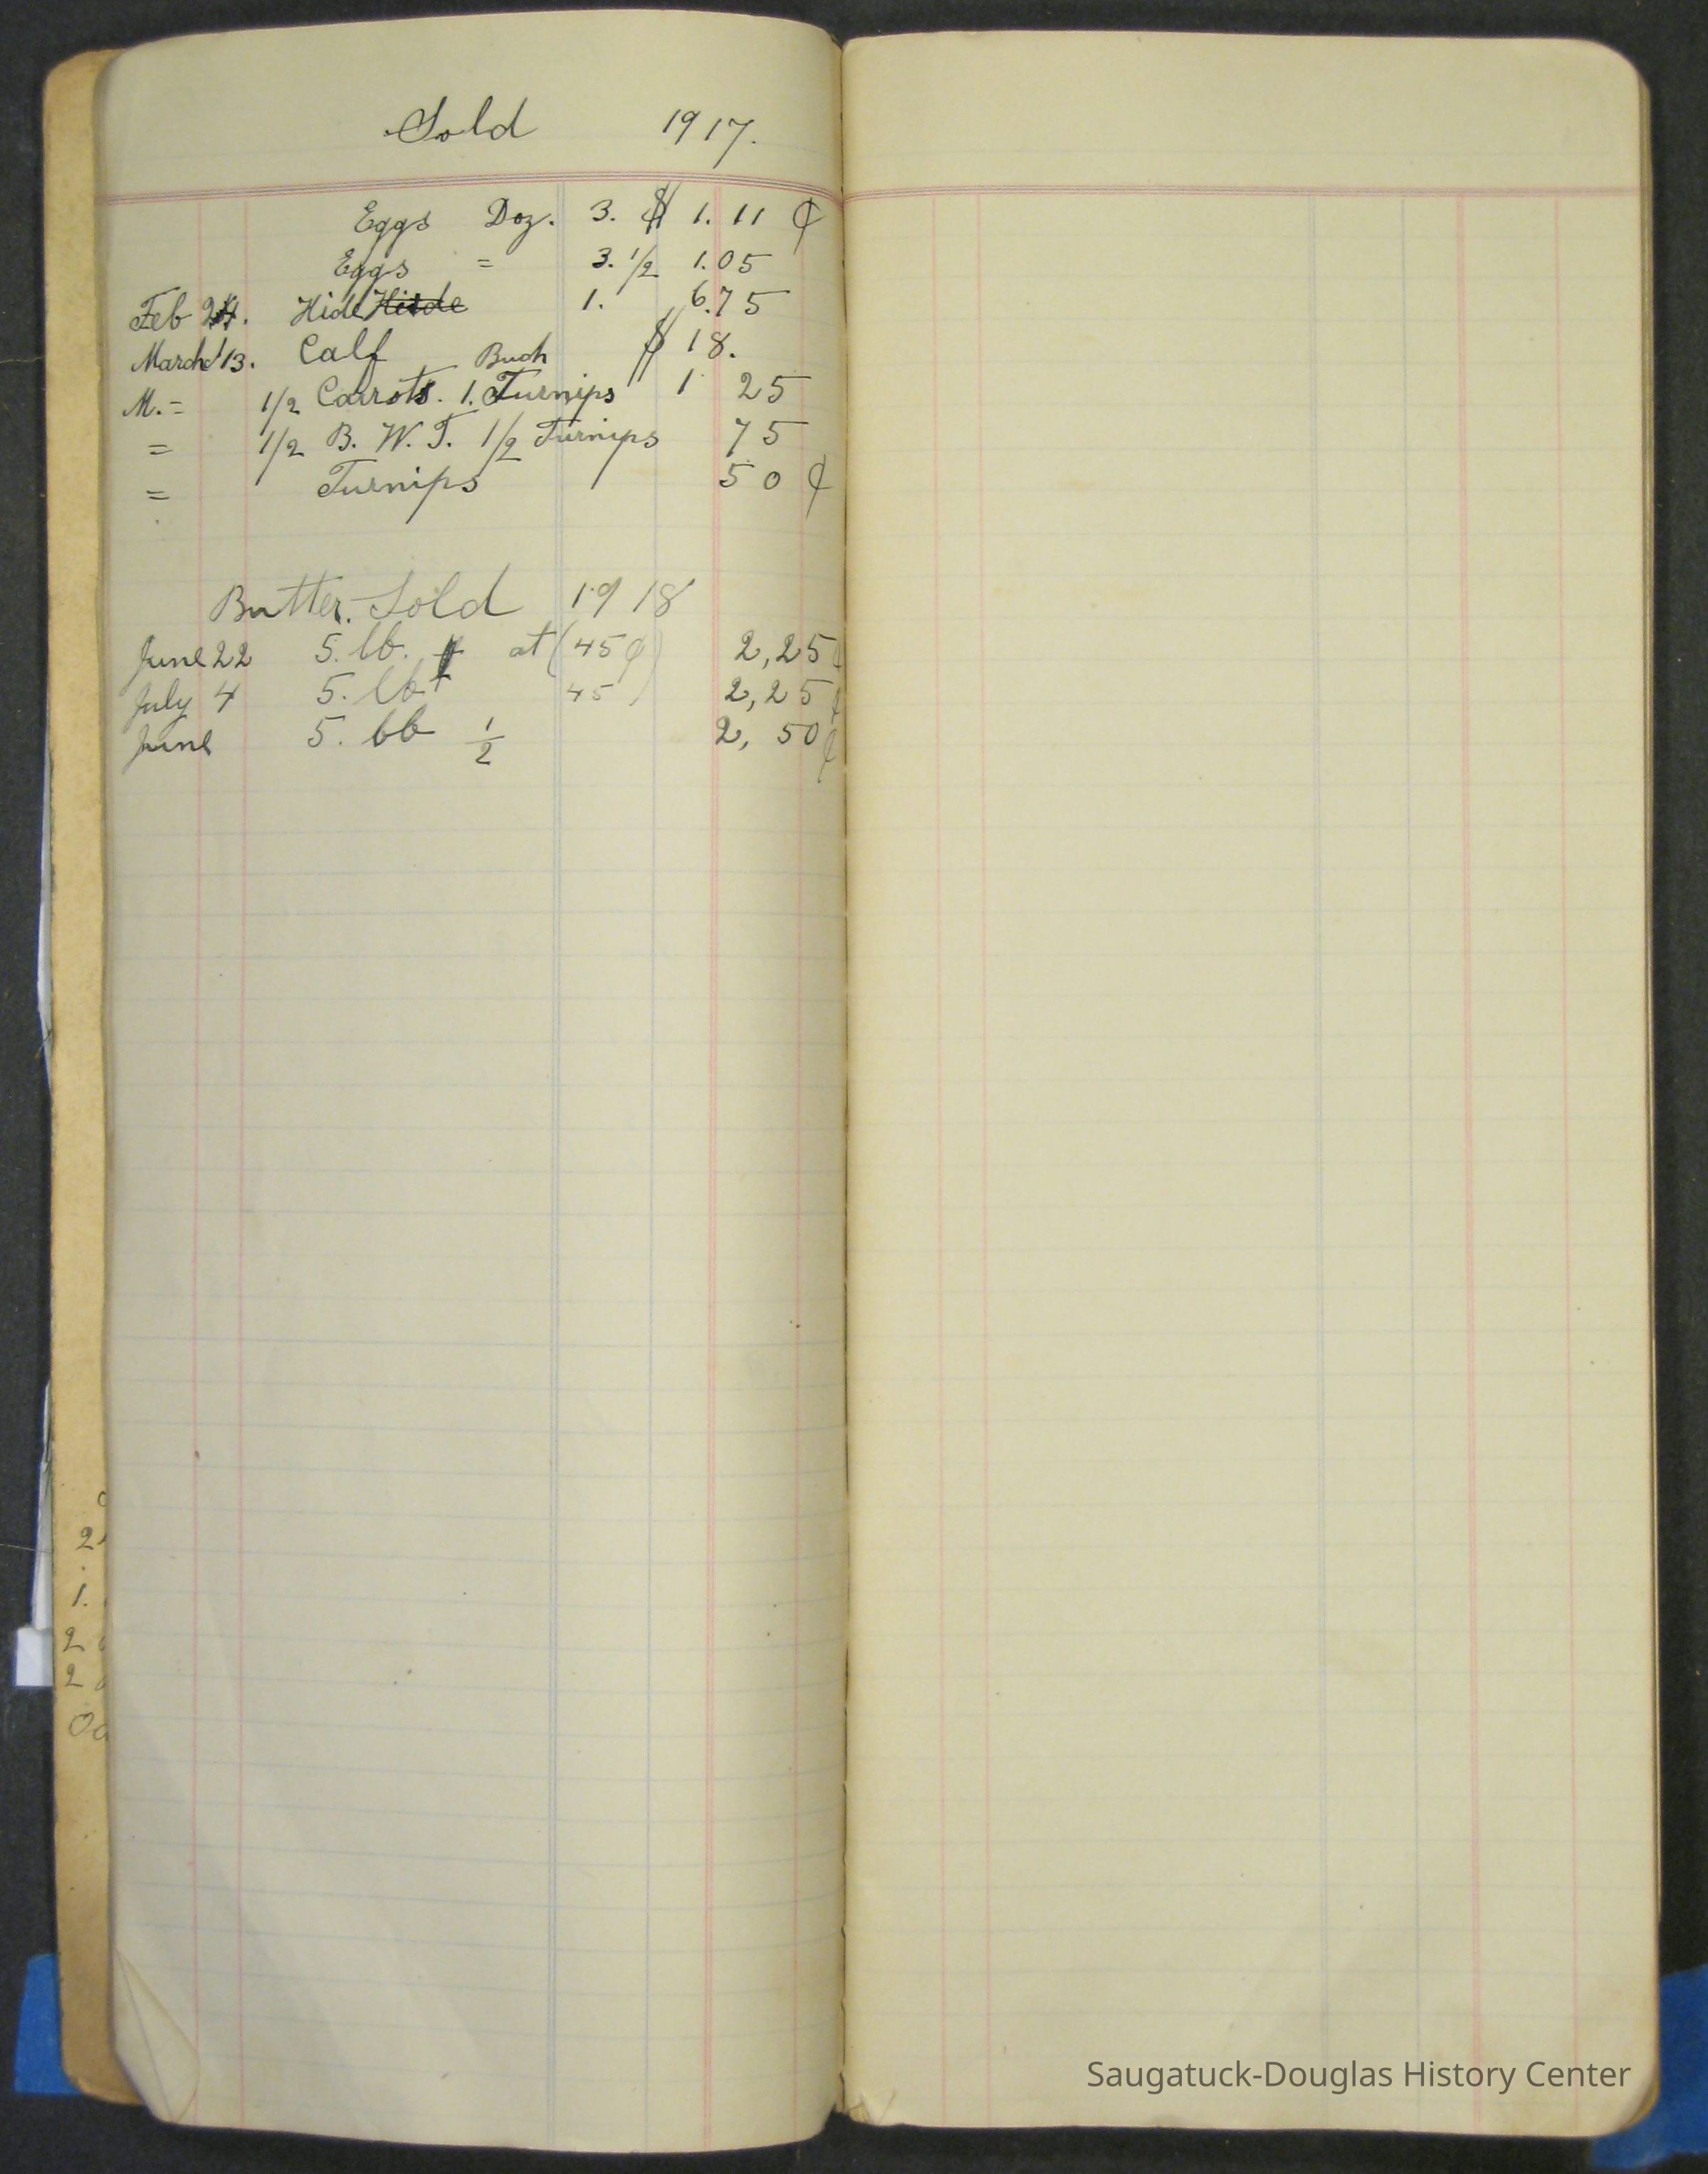 Sold 1917.
Eggs Doz. 3. $ 1.11 ¢
Eggs = 3. 1/2 1.05
Feb 24. Hide Hide 1. 6.75
March 13. Calf $ 18.
M. = 1/2 Carrots. 1. Turnips 1 25
= 1/2 B. W. T. 1/2 Turnips 75
= Turnips 50 ¢
Butter. Sold 1918
June 22 5. lb. at (45¢) 2,25¢
July 4 5. lb 45 ) 2,25¢
June 5. lb 1/2 2, 50¢
2
1.
2
2
Saugatuck-Douglas History Center